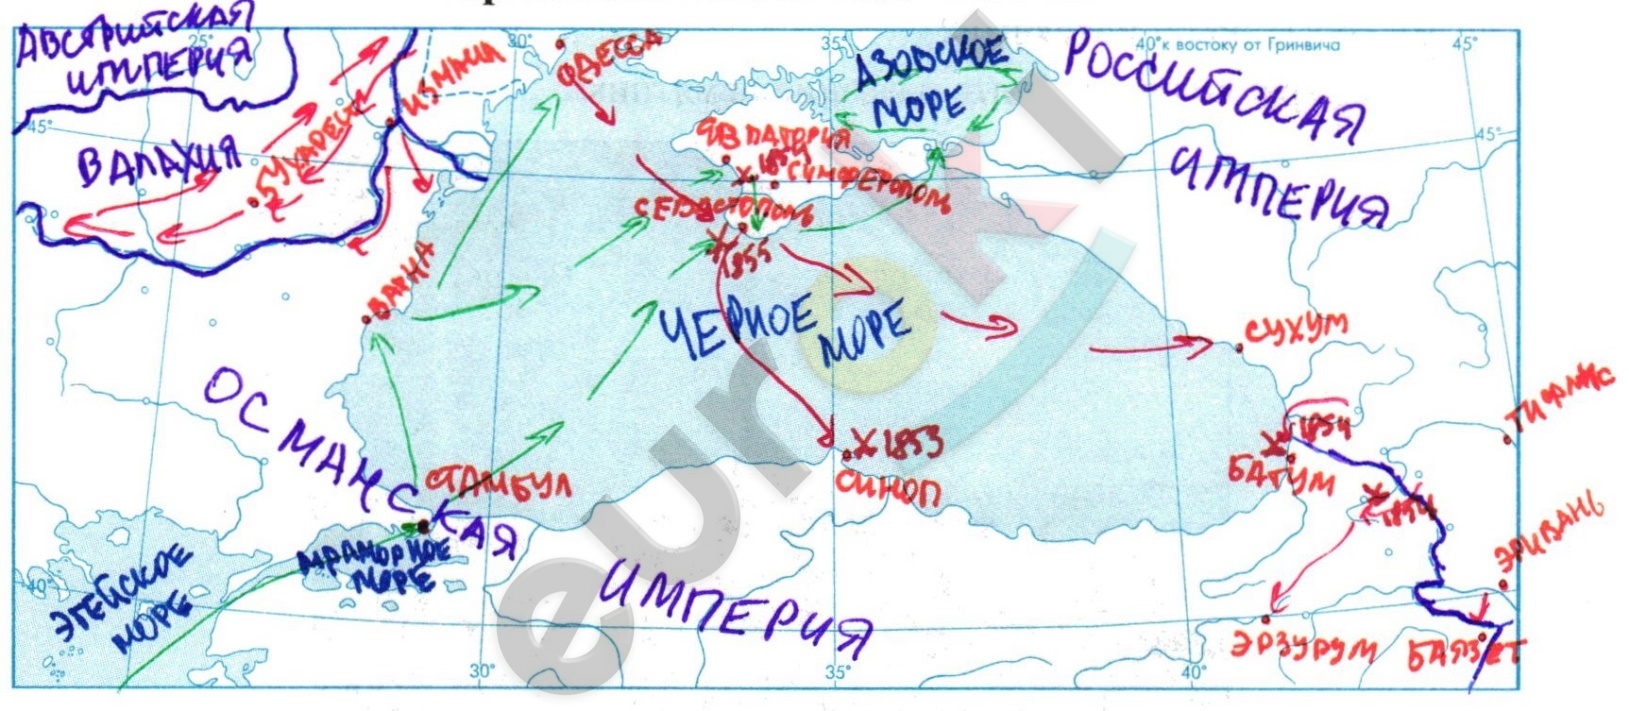 АВСТРИЙСКАЯ
ИМПЕРИЯ
25°
30°
35°
40° к востоку от Гринвича
45°
ОДЕССА
ИЗМАИЛ
АЗОВСКОЕ
МОРЕ
РОССИЙСКАЯ
ИМПЕРИЯ
45°
45°
ВАЛАХИЯ
БУХАРЕСТ
ЕВПАТОРИЯ
X 1854
СИМФЕРОПОЛЬ
СЕВАСТОПОЛЬ
X 1855
ВАРНА
ЧЕРНОЕ
МОРЕ
СУХУМ
ОСМАНСКАЯ
ИМПЕРИЯ
СТАМБУЛ
X 1853
СИНОП
X 1854
БАТУМ
ТИФЛИС
X 1854
ЭРИВАНЬ
МРАМОРНОЕ
МОРЕ
ЭГЕЙСКОЕ
МОРЕ
40°
ЭРЗУРУМ
БАЯЗЕТ
30°
35°
40°
euroki